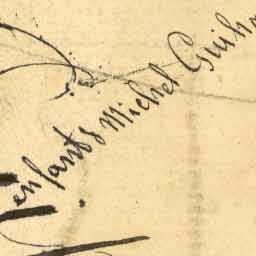 enfants Michel Guiho